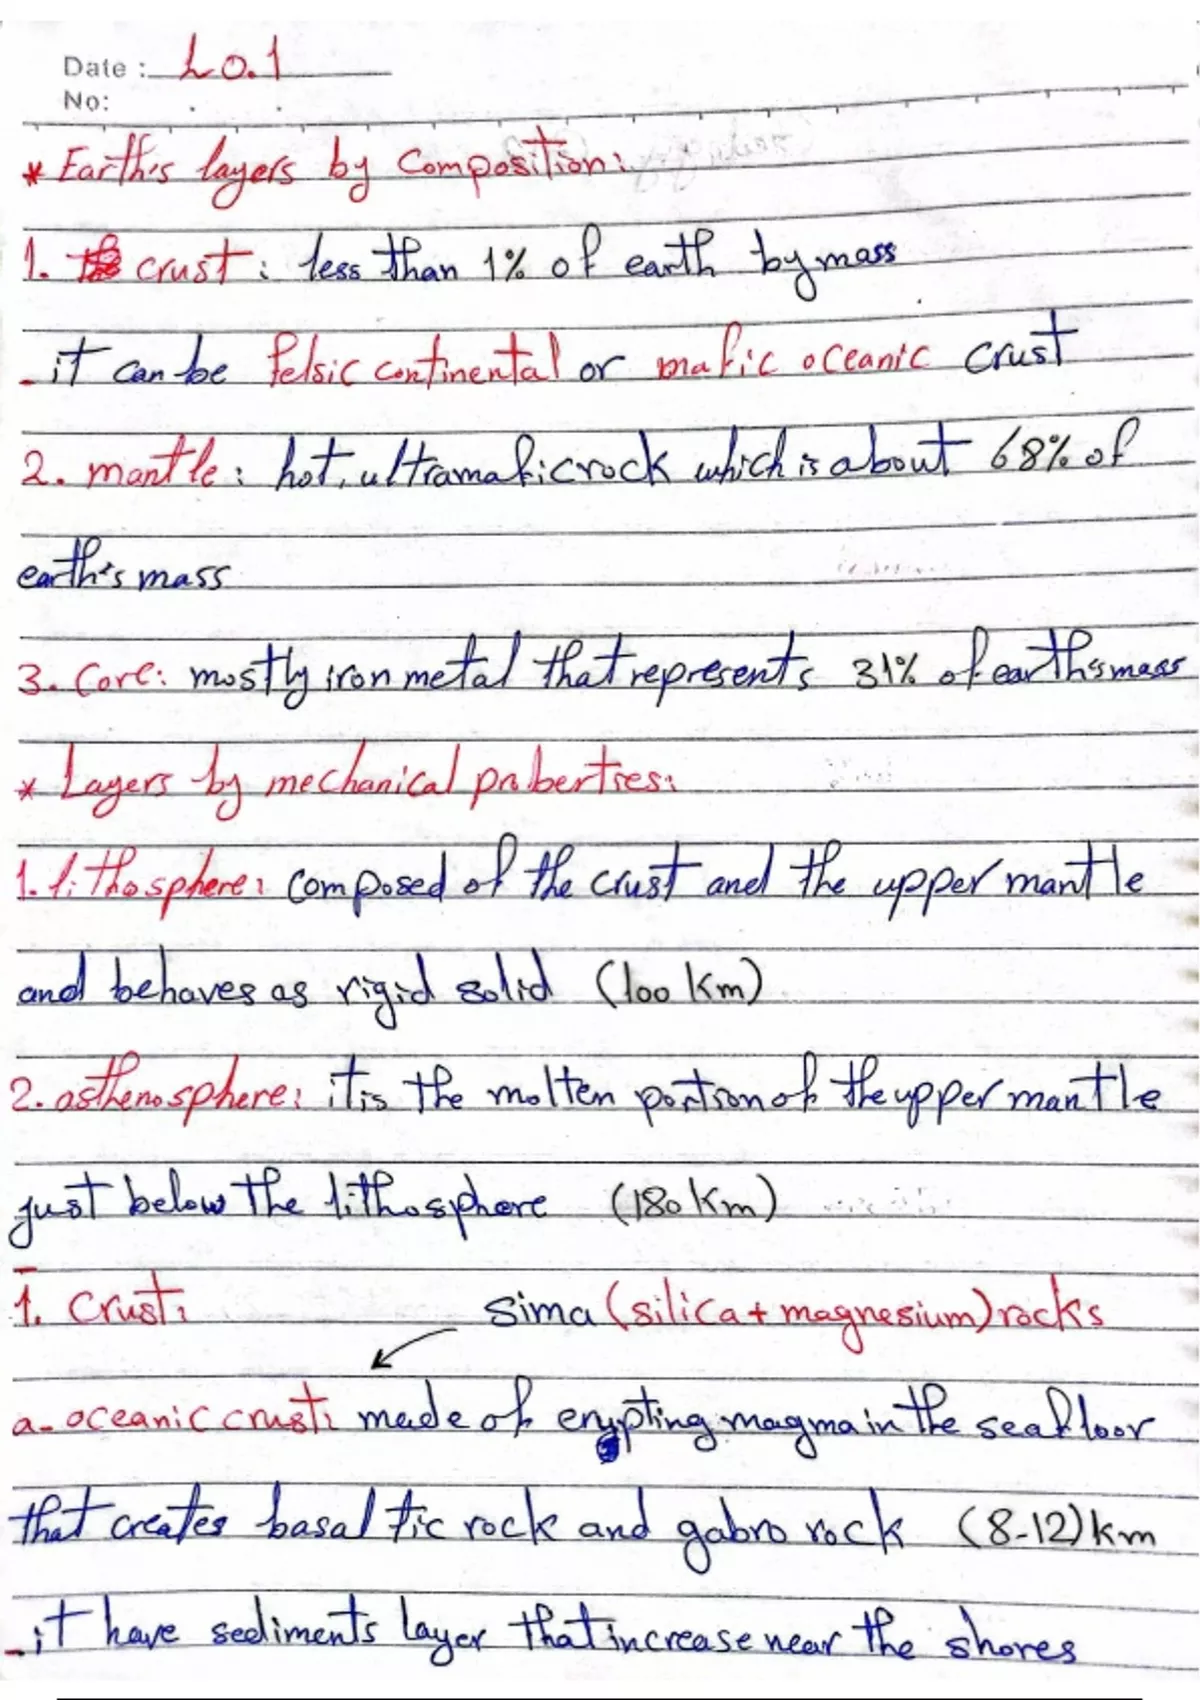 Date : LO.1
No:
* Earth's layers by composition:
1. crust : less than 1% of earth by mass
- it can be felsic continental or mafic oceanic crust
2. mantle : hot, ultramafic rock which is about 68% of
earth's mass
3. Core: mostly iron metal that represents 31% of earth's mass
* Layers by mechanical proberties:
1. lithosphere: composed of the crust and the upper mantle
and behaves as rigid solid (100 Km)
2. asthenosphere: it is the molten portion of the upper mantle
just below the lithosphere (180 Km)
1. Crust: sima (silica + magnesium) rocks
a- oceanic crust: made of erypting magma in the seafloor
that creates basaltic rock and gabro rock (8-12) km
- it have sediments layer that increase near the shores